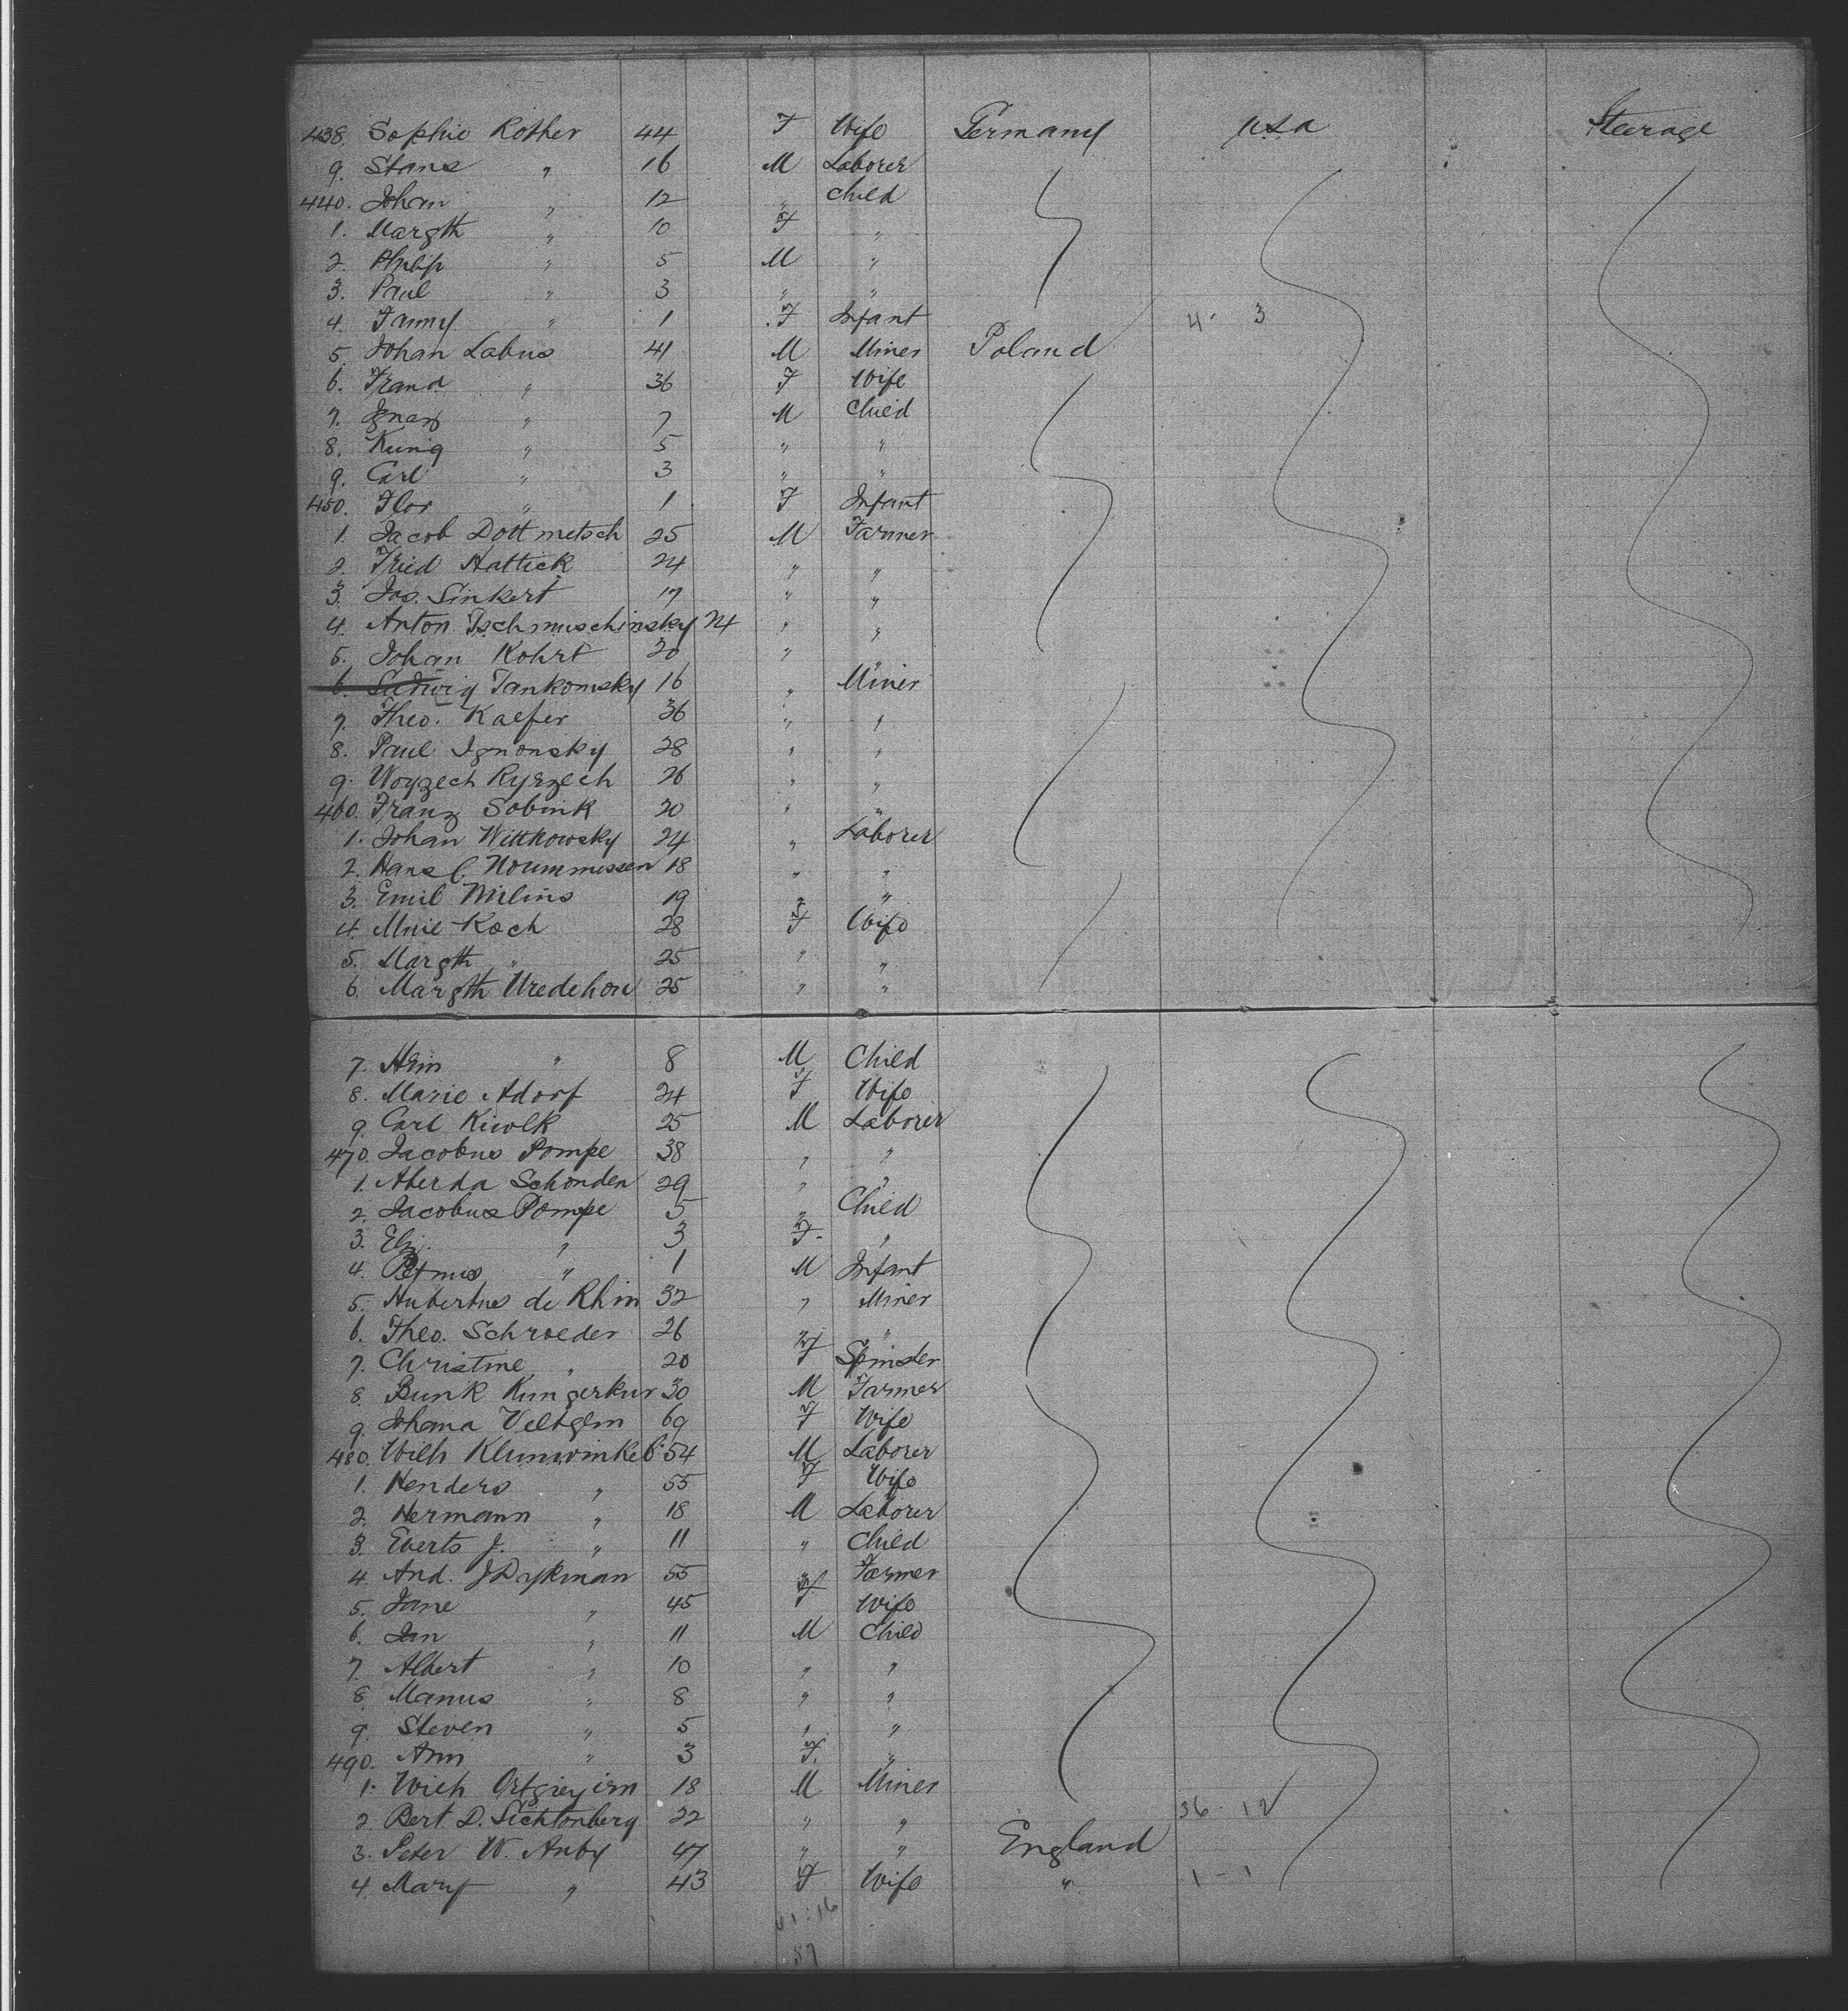 438. Sophie Rother 44 F Wife Germany USA Steerage
9. Stans " 16 M Laborer
440. Johan " 12 " Child
1. Margth " 10 F "
2. Philip " 5 M "
3. Paul " 3 " "
4. Fanny " 1 F Infant 4 - 3
5. Johan Labus 41 M Miner Poland
6. Frand " 36 F Wife
7. Ignaz " 7 M Child
8. Kunig " 5 " "
9. Carl " 3 " "
450. Flor " 1 F Infant
1. Jacob Dottmetsch 25 M Farmer
2. Fried Hattick 24 " "
3. Jos. Sinkert 17 " "
4. Anton Tschmuschinsky 24 " "
5. Johan Kohrt 20 " "
6. Ludwig Tankomsky 16 " Miner
7. Theo. Kaefer 36 " "
8. Paul Ignonsky 28 " "
9. Woyzech Ryrzech 26 " "
460. Franz Sobink 20 " "
1. Johan Wittkowsky 24 " Laborer
2. Hans C. Noummissen 18 " "
3. Emil Milins 19 " "
4. Mrie Koch 28 F Wife
5. Margth " 25 " "
6. Margth Uredehou 25 " "
7. Hein " 8 M Child
8. Marie Adorf 24 F Wife
9. Carl Kiwlk 25 M Laborer
470. Jacobus Pompe 38 " "
1. Aberda Schonden 29 " "
2. Jacobus Pompe 5 " Child
3. Eliz. " 3 F. "
4. Petrus " 1 M Infant
5. Hubertus de Rhin 32 " Miner
6. Theo. Schroeder 26 " "
7. Christine " 20 F Spinster
8. Bunk Kungerkur 30 M Farmer
9. Johana Veltglm 69 F Wife
480. Wilh Klumwinkel 54 M Laborer
1. Henders " 55 F Wife
2. Hermann " 18 M Laborer
3. Everts J. " 11 " Child
4. And. J Dykman 55 " Farmer
5. Jane " 45 F Wife
6. Jan " 11 M Child
7. Albert " 10 " "
8. Manus " 8 " "
9. Steven " 5 " "
490. Ann " 3 F. "
1. Wilh 18 M Miner
2. Bert. D. Sichtonberg 22 " " 36 - 12
3. Peter W. Anby 47 " " England
4. Mary " 43 F Wife " 1 - 1
41 : 16
57